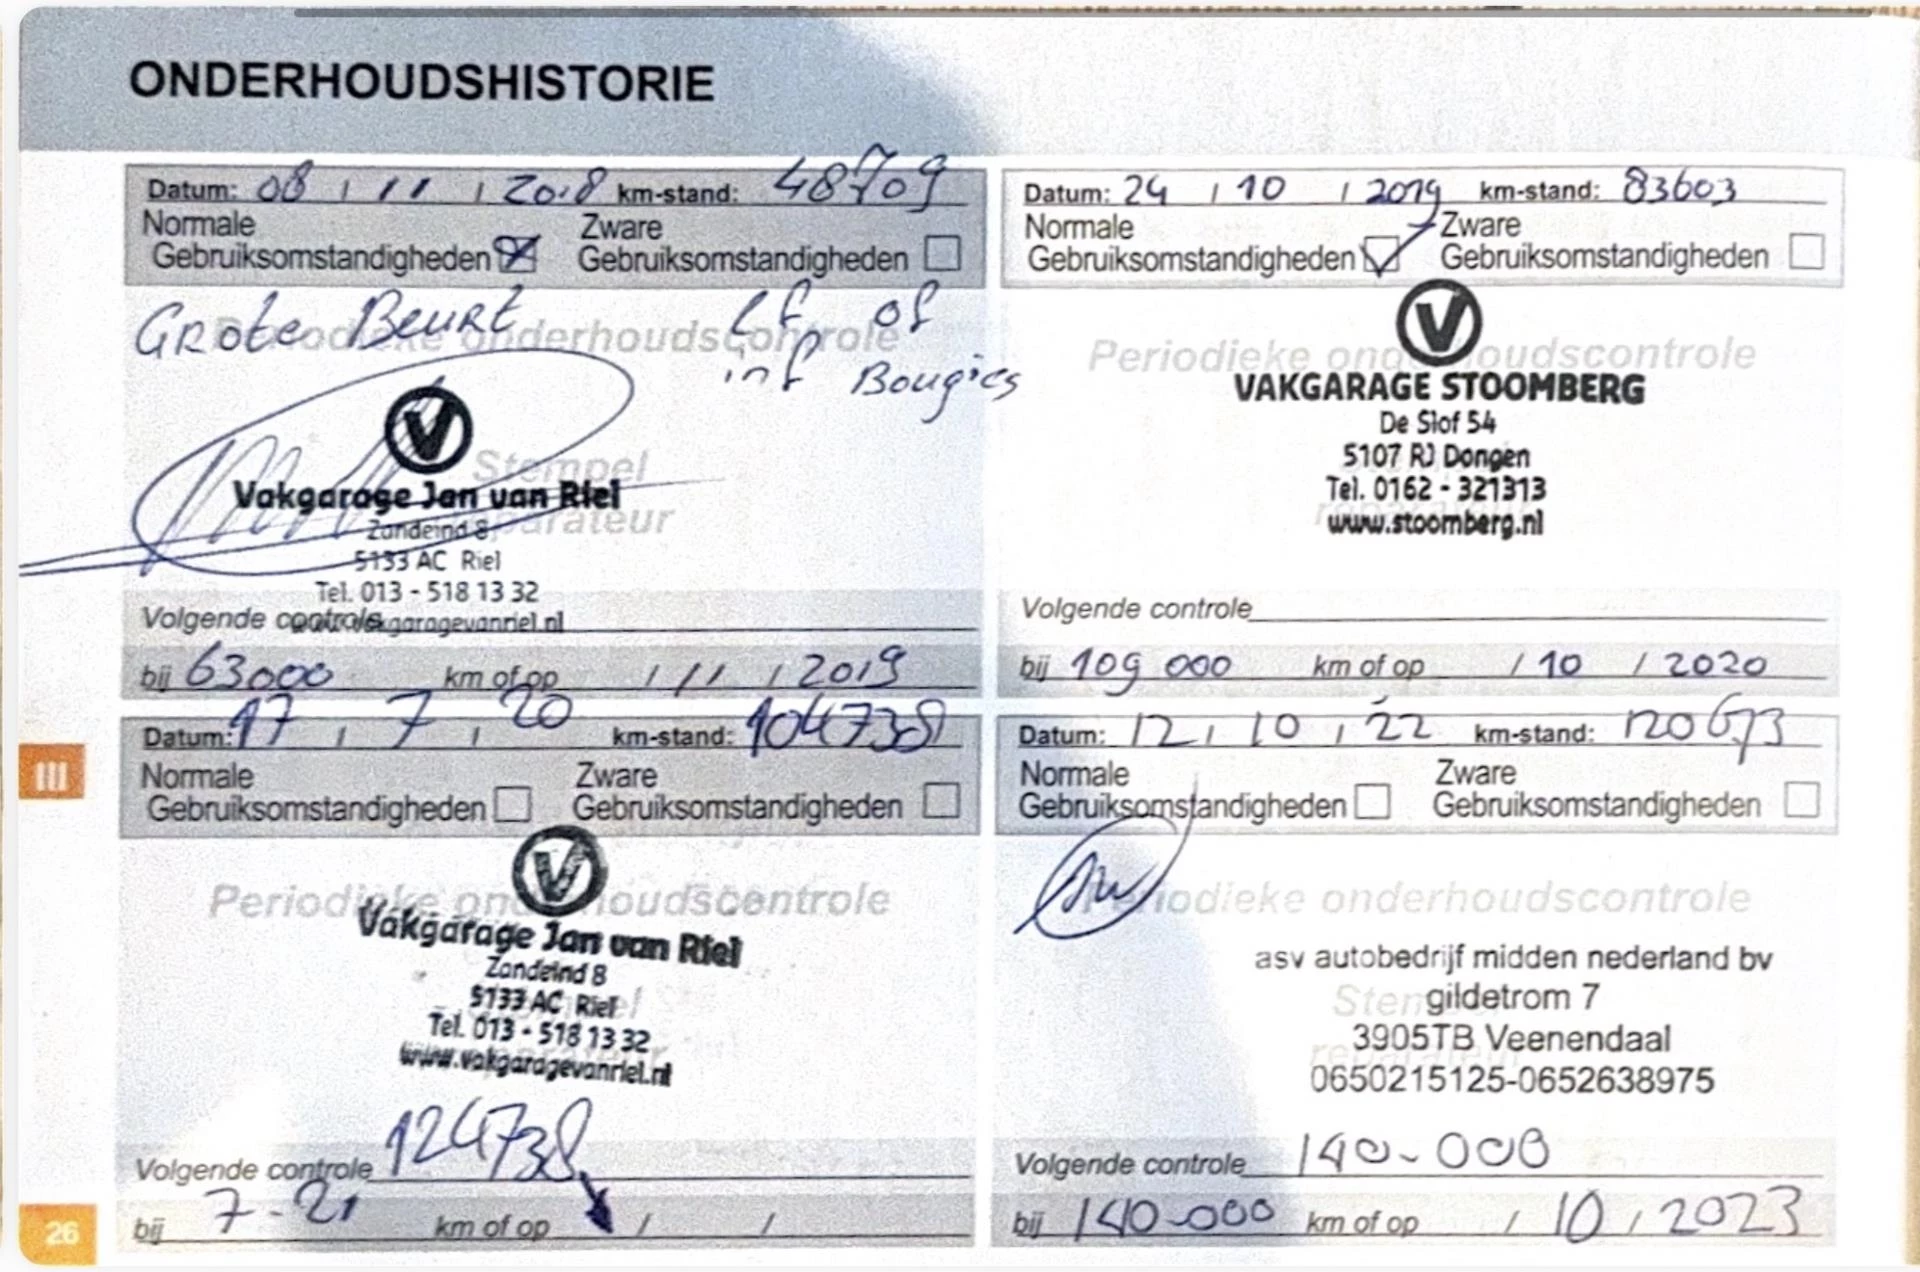 ONDERHOUDSHISTORIE
Datum: 08 / 11 / 2018 km-stand: 48709
Normale Zware
Gebruiksomstandigheden Gebruiksomstandigheden
Grote Beurt Lf of
Periodieke onderhoudscontrole
inf Bougies
Stempel
reparateur
Vakgarage Jan van Riel
Zandeind 8
5133 AC Riel
Tel. 013 - 518 13 32
Volgende controle
www.vakgaragevanriel.nl
bij 63000 km of op / 11 / 2019
Datum: 24 / 10 / 2019 km-stand: 83603
Normale Zware
Gebruiksomstandigheden Gebruiksomstandigheden
Periodieke onderhoudscontrole
VAKGARAGE STOOMBERG
De Slof 54
5107 RJ Dongen
Tel. 0162 - 321313
www.stoomberg.nl
Volgende controle
bij 109 000 km of op / 10 / 2020
Datum: 17 / 7 / 20 km-stand: 104738
Normale Zware
Gebruiksomstandigheden Gebruiksomstandigheden
Periodieke onderhoudscontrole
Vakgarage Jan van Riel
Zandeind 8
5133 AC Riel
Tel. 013 - 518 13 32
www.vakgaragevanriel.nl
Volgende controle 124738
bij 7-21 km of op / /
Datum: 12 / 10 / 22 km-stand: 120673
Normale Zware
Gebruiksomstandigheden Gebruiksomstandigheden
Periodieke onderhoudscontrole
asv autobedrijf midden nederland bv
Stempel
gildetrom 7
3905TB Veenendaal
reparateur
0650215125-0652638975
Volgende controle 140-000
bij 140-000 km of op / 10 / 2023
III
26